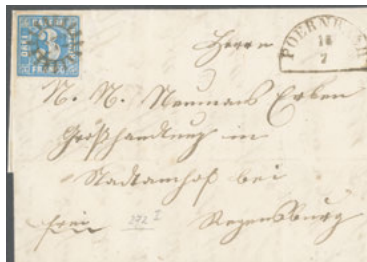 POERNBACH
Herrn
N. N. Neumans Erben
Großhandlung in
Stadtamhof bei
frei 272 I Regensburg